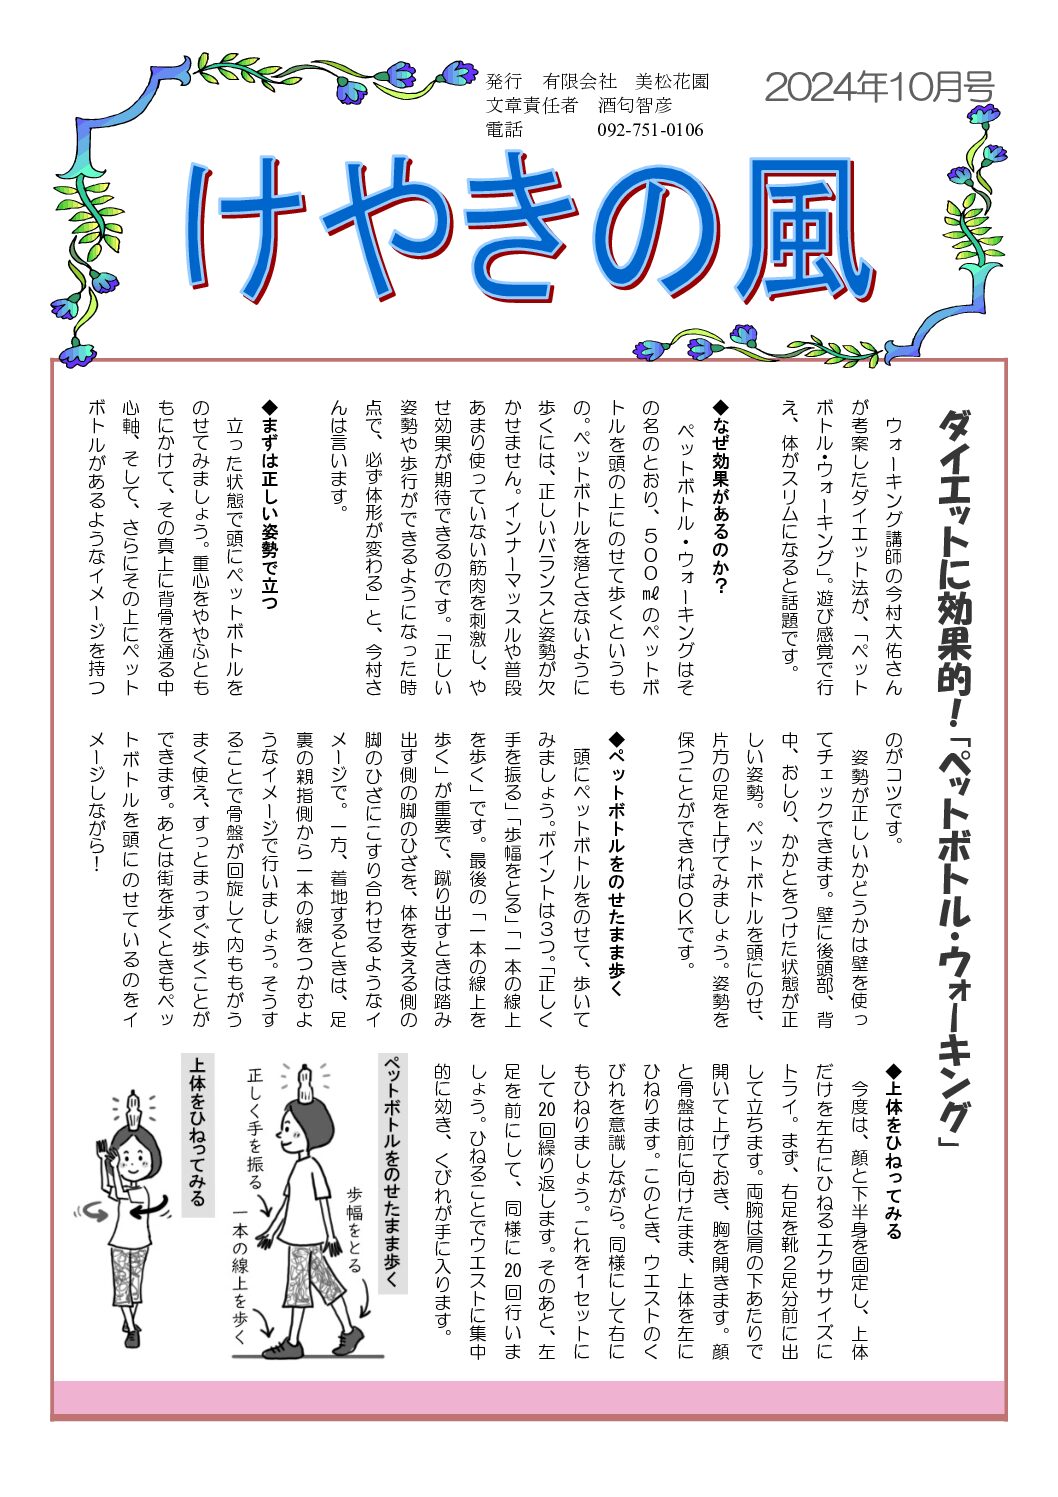 発行　有限会社　美松花園
文章責任者　酒匂智彦
電話　092-751-0106
2024年10月号
けやきの風
ダイエットに効果的！「ペットボトル・ウォーキング」
ウォーキング講師の今村大佑さん
が考案したダイエット法が、「ペット
ボトル・ウォーキング」。遊び感覚で行
え、体がスリムになると話題です。
◆なぜ効果があるのか？
ペットボトル・ウォーキングはそ
の名のとおり、５００㎖のペットボ
トルを頭の上にのせて歩くというも
の。ペットボトルを落とさないように
歩くには、正しいバランスと姿勢が欠
かせません。インナーマッスルや普段
あまり使っていない筋肉を刺激し、や
せ効果が期待できるのです。「正しい
姿勢や歩行ができるようになった時
点で、必ず体形が変わる」と、今村さ
んは言います。
◆まずは正しい姿勢で立つ
立った状態で頭にペットボトルを
のせてみましょう。重心をややふとも
もにかけて、その真上に背骨を通る中
心軸、そして、さらにその上にペット
ボトルがあるようなイメージを持つ
のがコツです。
姿勢が正しいかどうかは壁を使っ
てチェックできます。壁に後頭部、背
中、おしり、かかとをつけた状態が正
しい姿勢。ペットボトルを頭にのせ、
片方の足を上げてみましょう。姿勢を
保つことができればＯＫです。
◆ペットボトルをのせたまま歩く
頭にペットボトルをのせて、歩いて
みましょう。ポイントは３つ。「正しく
手を振る」「歩幅をとる」「一本の線上
を歩く」です。最後の「一本の線上を
歩く」が重要で、蹴り出すときは踏み
出す側の脚のひざを、体を支える側の
脚のひざにこすり合わせるようなイ
メージで。一方、着地するときは、足
裏の親指側から一本の線をつかむよ
うなイメージで行いましょう。そうす
ることで骨盤が回旋して内ももがう
まく使え、すっとまっすぐ歩くことが
できます。あとは街を歩くときもペッ
トボトルを頭にのせているのをイ
メージしながら！
◆上体をひねってみる
今度は、顔と下半身を固定し、上体
だけを左右にひねるエクササイズに
トライ。まず、右足を靴２足分前に出
して立ちます。両腕は肩の下あたりで
開いて上げておき、胸を開きます。顔
と骨盤は前に向けたまま、上体を左に
ひねります。このとき、ウエストのく
びれを意識しながら。同様にして右に
もひねりましょう。これを１セットに
して20回繰り返します。そのあと、左
足を前にして、同様に20回行いま
しょう。ひねることでウエストに集中
的に効き、くびれが手に入ります。
ペットボトルをのせたまま歩く
歩幅をとる
正しく手を振る
一本の線上を歩く
上体をひねってみる